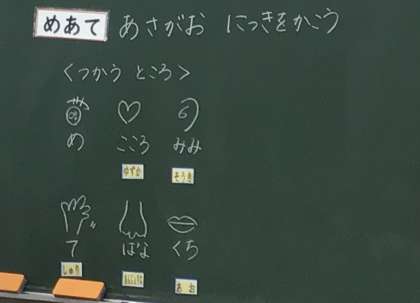 めあて あさがお にっきをかこう
<つかう ところ>
め こころ みみ
ゆずか そうき
て はな くち
しゅり あお